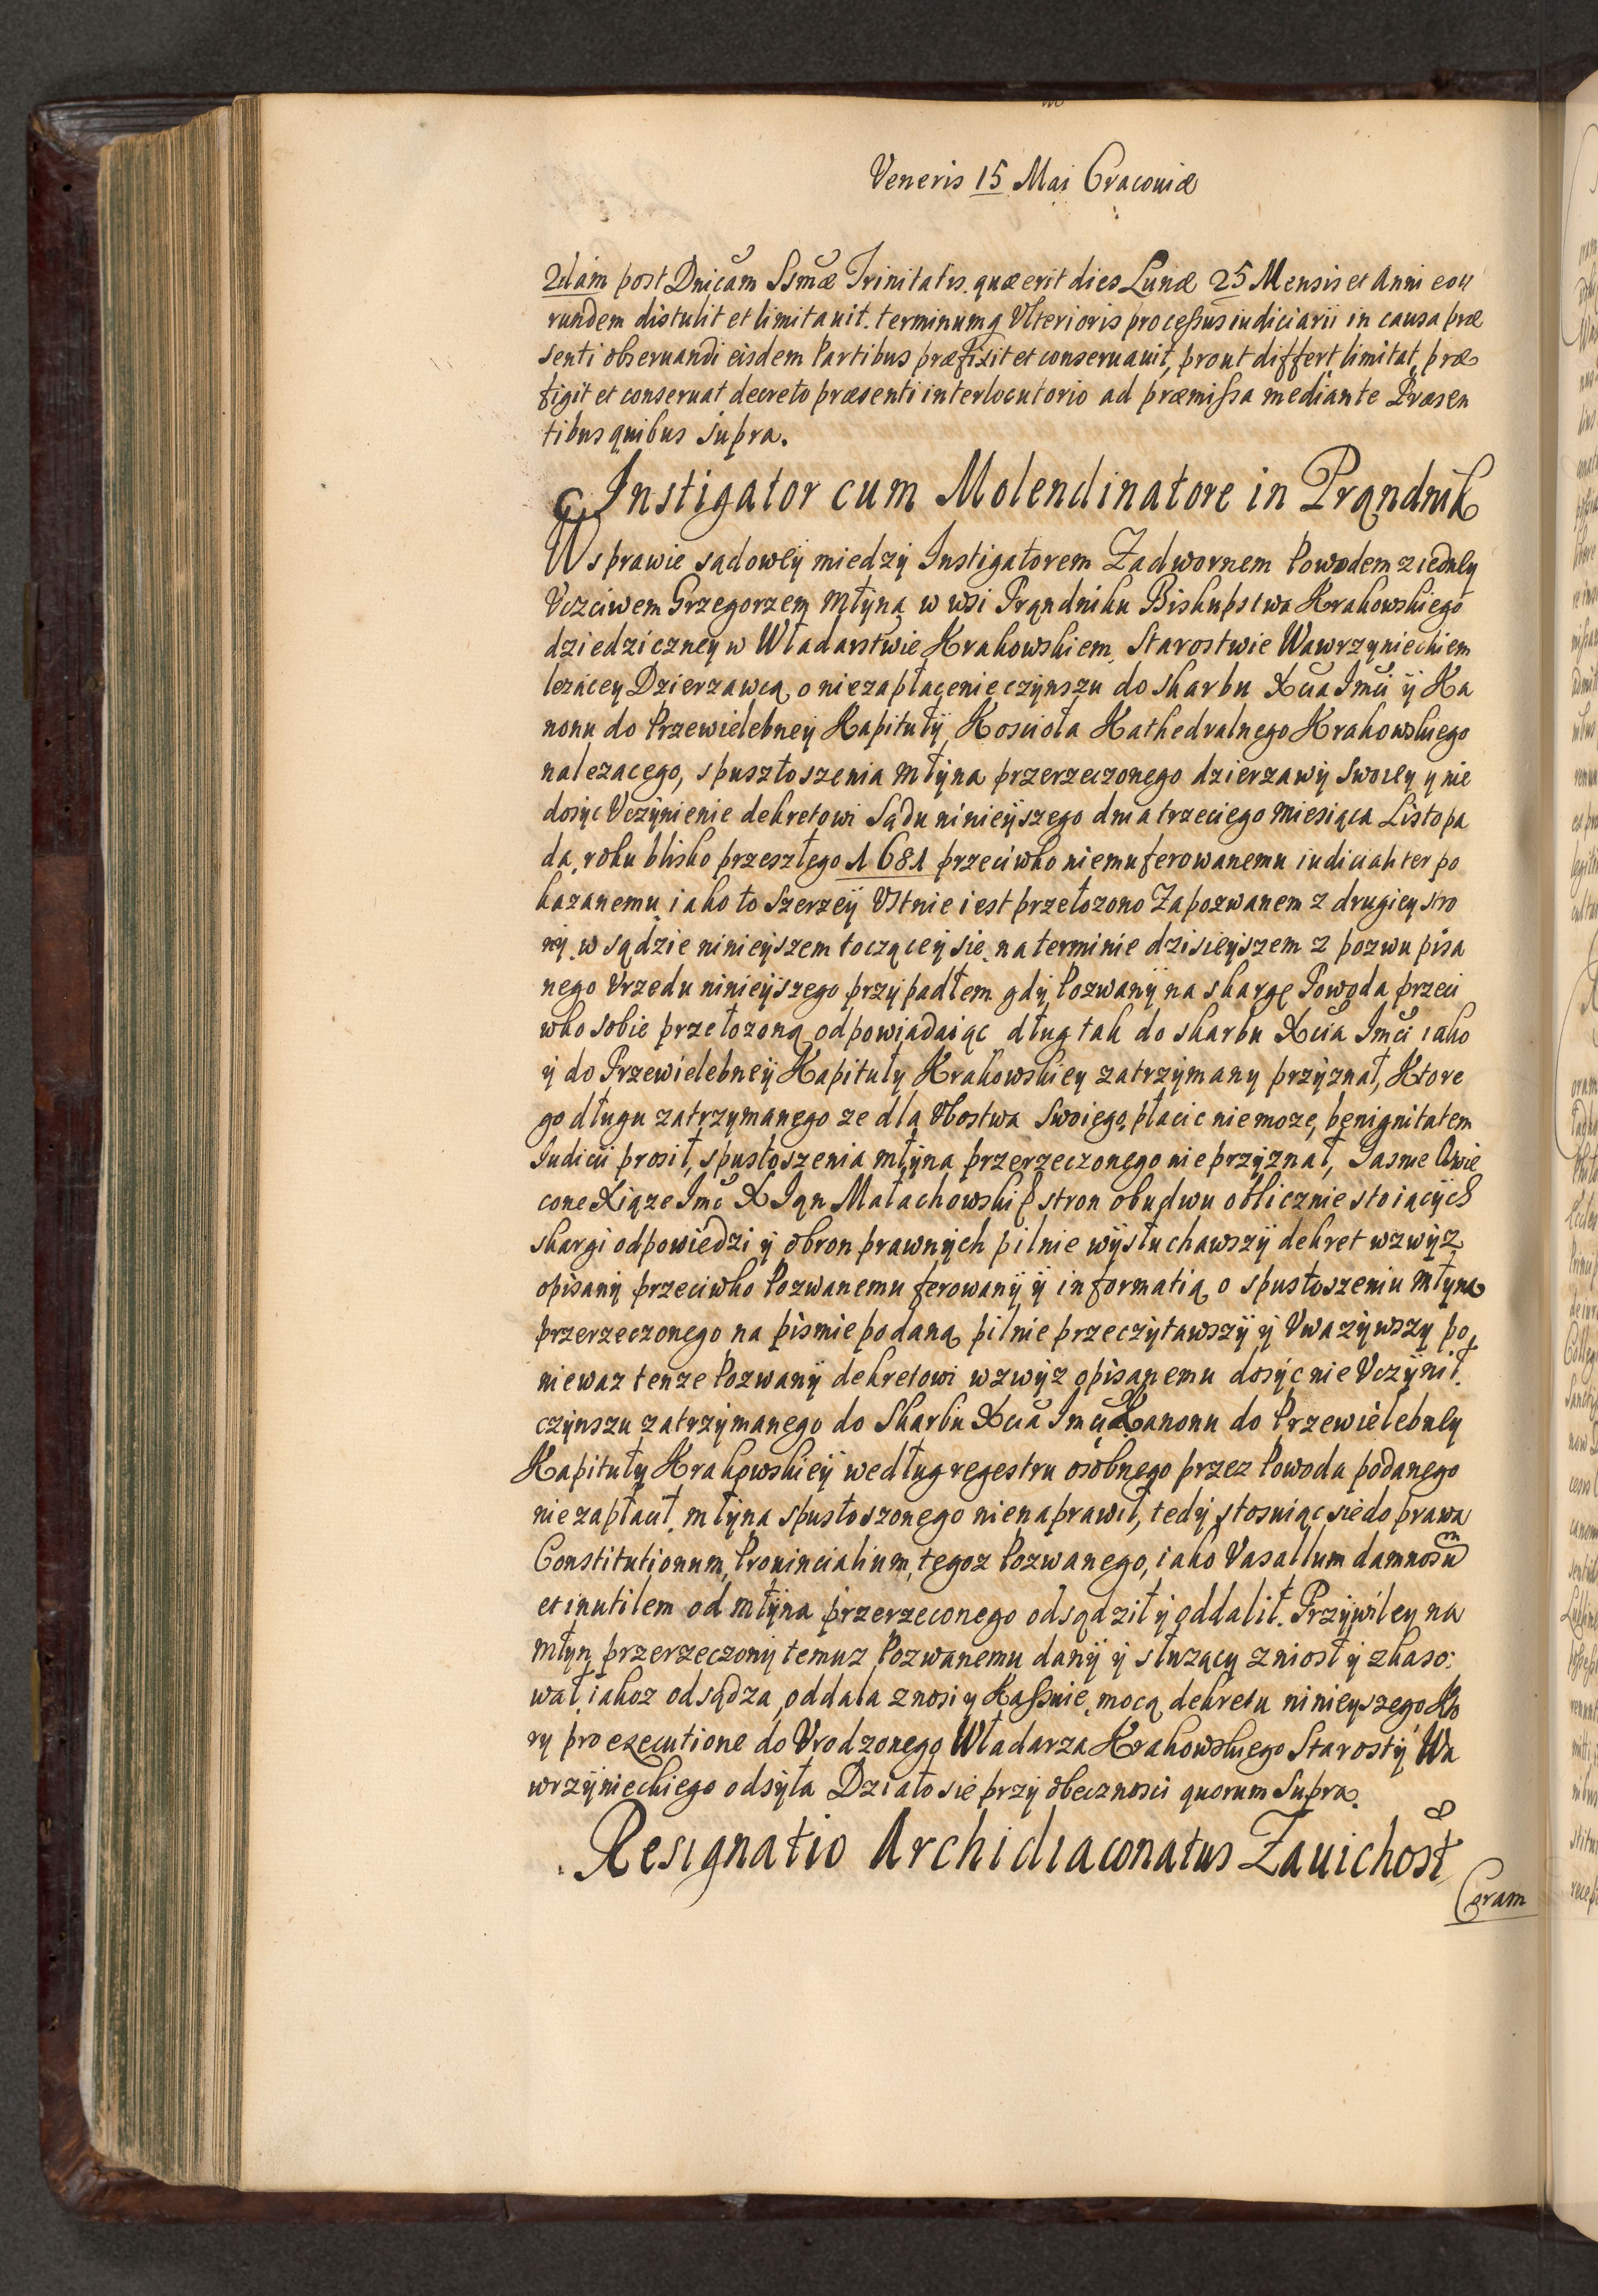 Veneris 15 Mai Cracoviæ
2dam post Dnicam Ssmæ Trinitatis. quæ erit dies Lunæ 25 Mensis et Anni eou
rundem distulit et limitauit. terminumq Vlterioris processus iudiciarii in causa præ
senti obseruandi eisdem Partibus præfixit et conseruauit, prout differt, limitat, præ
figit et conseruat decreto præsenti interlocutorio ad præmissa mediante Præsen
tibus quibus supra.
Instigator cum Molendinatore in Prądnik
W sprawie sądowey miedzy Instigatorem Zadwornem Powodem z iedney
Vczciwem Grzegorzem Młyna w wsi Prąndniku Biskupstwa Krakowskiego
dziedziczney w Władarstwie Krakowskiem, Starostwie Wawrzynieckiem
lezącey Dzierzawcą, o niezapłacenie czÿnszu do skarbu Xcia Imci ÿ Ka
nonu do Przewielebneÿ Kapitułÿ, Koscioła Kathedralnego Krakowskiego
nalezacego, spusztoszenia młÿna przerzeczonego dzierzawÿ swoiey y nie
dosÿc Vczÿnienie dekretowi Sądu ninieÿszego dnia trzeciego miesiąca Listopa
da, roku blisko przeszłego 1681 przeciwko niemu ferowanemu iudicialiter po
kazanemu, iako to szerzeÿ Vstnie iest przełozono Zapozwanem z drugiey stro
nÿ, w sądzie ninieÿszem toczącej sie, na terminie dzisieÿszem z pozwu pisa
nego Vrzedu ninieÿszego przÿpadłem gdÿ Pozwanÿ na skargę Powoda przeci
wko sobie przełozoną odpowiadaiąc dług tak do skarbu Xcia Imci iako
ÿ do Przewielebneÿ Kapitułÿ Krakowskiey zatrzÿmany przÿznał, Ktore
go długu zatrzymanego ze dla Vbostwa swoiego, płacic nie moze, benignitatem
Iudicii prosił, spustoszenia młÿna przerzeczonego nie przÿznał, Jasnie Oswie
cone Xiąze Imc X Ian Małachowski stron obudwu oblicznie stoiącÿch
skargi odpowiedzi ÿ obron prawnÿch pilnie wÿsłuchawszÿ dekret wzwÿz
opisanÿ przeciwko Pozwanemu ferowanÿ ÿ informatią o spustoszeniu młÿna
przerzeczonego na pismie podaną pilnie przeczÿtawszÿ ÿ Vwazÿwszy po
niewaz tenze Pozwanÿ dekretowi wzwÿz opisanemu dosÿc nie Vczÿnił.
czÿnszu zatrzÿmanego do Skarbu Xcia Imci Kanonu do Przewielebney
Kapituły Krakowskieÿ według regestru osobnego przez Powoda podanego
nie zapłacił, młÿna spustoszonego nienaprawił, tedÿ stosuiąc sie do prawa
Constitutionum, Prouincialium, tegoz Pozwanego, iako Vasallum damnosum
et inutilem od młÿna przerzeconego odsądził ÿ oddalił. Przÿwiley na
młyn przerzeczonÿ temuz Pozwanemu danÿ ÿ słuzący zniosł ÿ zkaso:
wał, iakoz odsądza, oddala znosi y Kassuie, mocą dekretu ninieyszego Kto
ry pro executione do Vrodzonego Władarza Krakowskiego Starostÿ Wa
wrzÿnieckiego odsÿła Działo sie przÿ obecznosci quorum supra.
Resignatio Archidiaconatus Zauichost
Coram